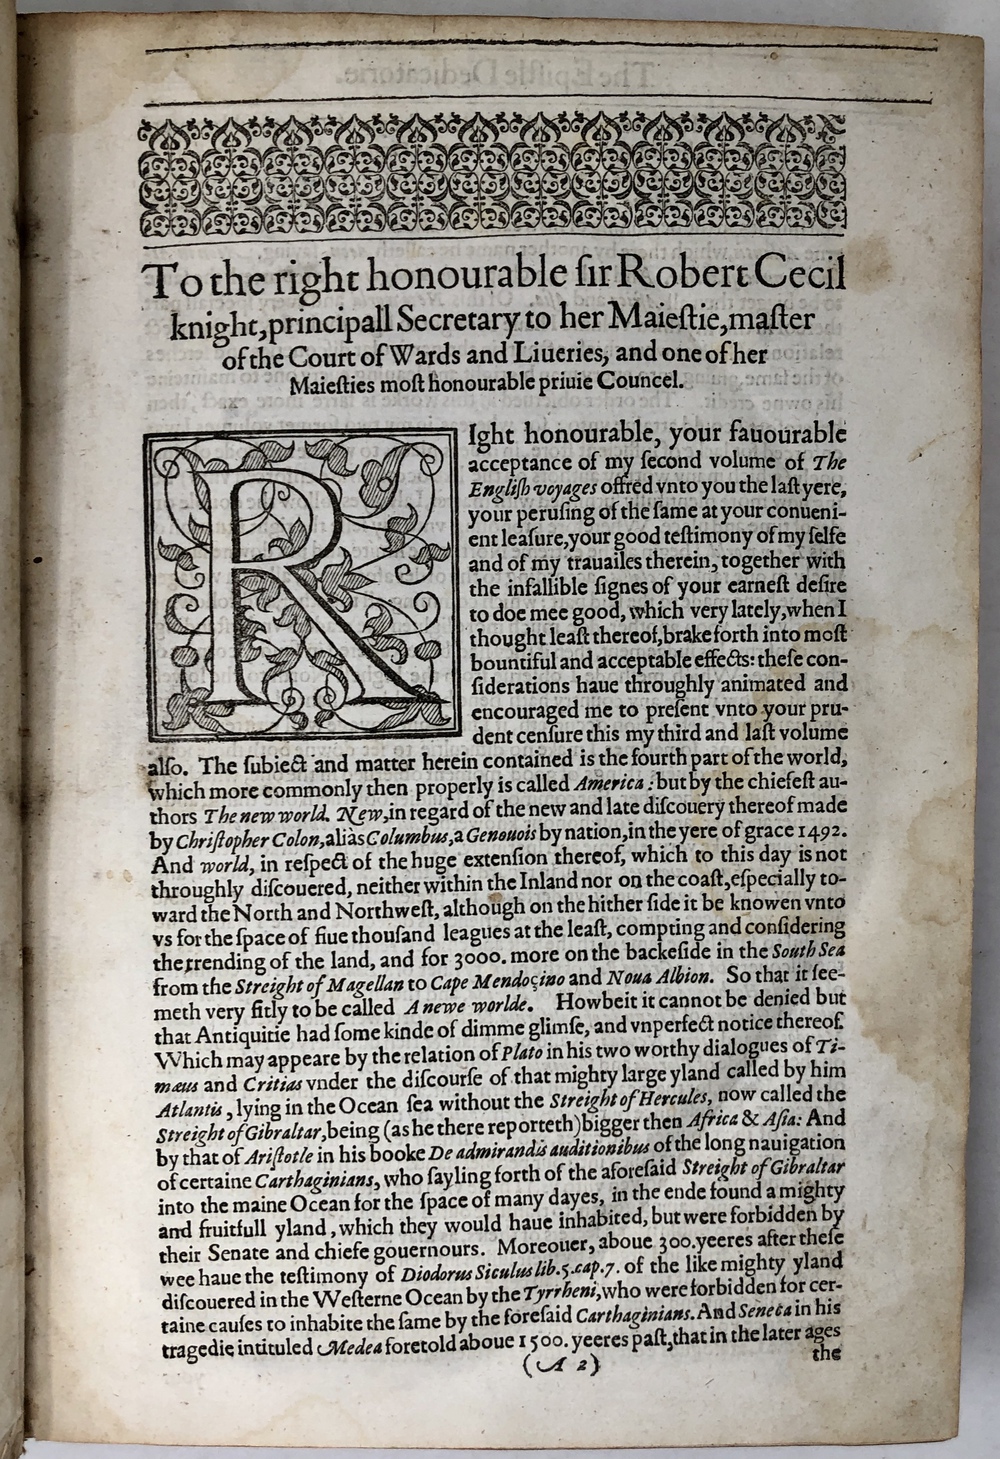 To the right honourable ſir Robert Cecil
knight,principall Secretary to her Maieſtie,maſter
of the Court of Wards and Liueries, and one of her
Maieſties moſt honourable priuie Councel.
RIght honourable, your fauourable
acceptance of my ſecond volume of The
Engliſh voyages offred vnto you the laſt yere,
your peruſing of the ſame at your conueni-
ent leaſure,your good teſtimony of my ſelfe
and of my trauailes therein, together with
the infallible ſignes of your earneſt deſire
to doe mee good, which very lately,when I
thought leaſt thereof,brake forth into moſt
bountiful and acceptable effects: theſe con-
ſiderations haue throughly animated and
encouraged me to preſent vnto your pru-
dent cenſure this my third and laſt volume
alſo. The ſubiect and matter herein contained is the fourth part of the world,
which more commonly then properly is called America : but by the chiefeſt au-
thors The new world. New,in regard of the new and late diſcouery thereof made
by Chriſtopher Colon,aliàs Columbus,a Genouois by nation,in the yere of grace 1492.
And world, in reſpect of the huge extenſion thereof, which to this day is not
throughly diſcouered, neither within the Inland nor on the coaſt,eſpecially to-
ward the North and Northweſt, although on the hither ſide it be knowen vnto
vs for the ſpace of fiue thouſand leagues at the leaſt, compting and conſidering
the trending of the land, and for 3000. more on the backeſide in the South Sea
from the Streight of Magellan to Cape Mendoçino and Noua Albion. So that it ſee-
meth very fitly to be called A newe worlde. Howbeit it cannot be denied but
that Antiquitie had ſome kinde of dimme glimſe, and vnperfect notice thereof.
Which may appeare by the relation of Plato in his two worthy dialogues of Ti-
mæus and Critias vnder the diſcourſe of that mighty large yland called by him
Atlantis, lying in the Ocean ſea without the Streight of Hercules, now called the
Streight of Gibraltar,being (as he there reporteth)bigger then Africa & Aſia: And
by that of Ariſtotle in his booke De admirandis auditionibus of the long nauigation
of certaine Carthaginians, who ſayling forth of the aforeſaid Streight of Gibraltar
into the maine Ocean for the ſpace of many dayes, in the ende found a mighty
and fruitfull yland, which they would haue inhabited, but were forbidden by
their Senate and chiefe gouernours. Moreouer, aboue 300.yeeres after theſe
wee haue the teſtimony of Diodorus Siculus lib.5.cap.7. of the like mighty yland
diſcouered in the Weſterne Ocean by the Tyrrheni,who were forbidden for cer-
taine cauſes to inhabite the ſame by the foreſaid Carthaginians. And Seneca in his
tragedie intituled Medea foretold aboue 1500. yeeres paſt,that in the later ages
(A 2) the